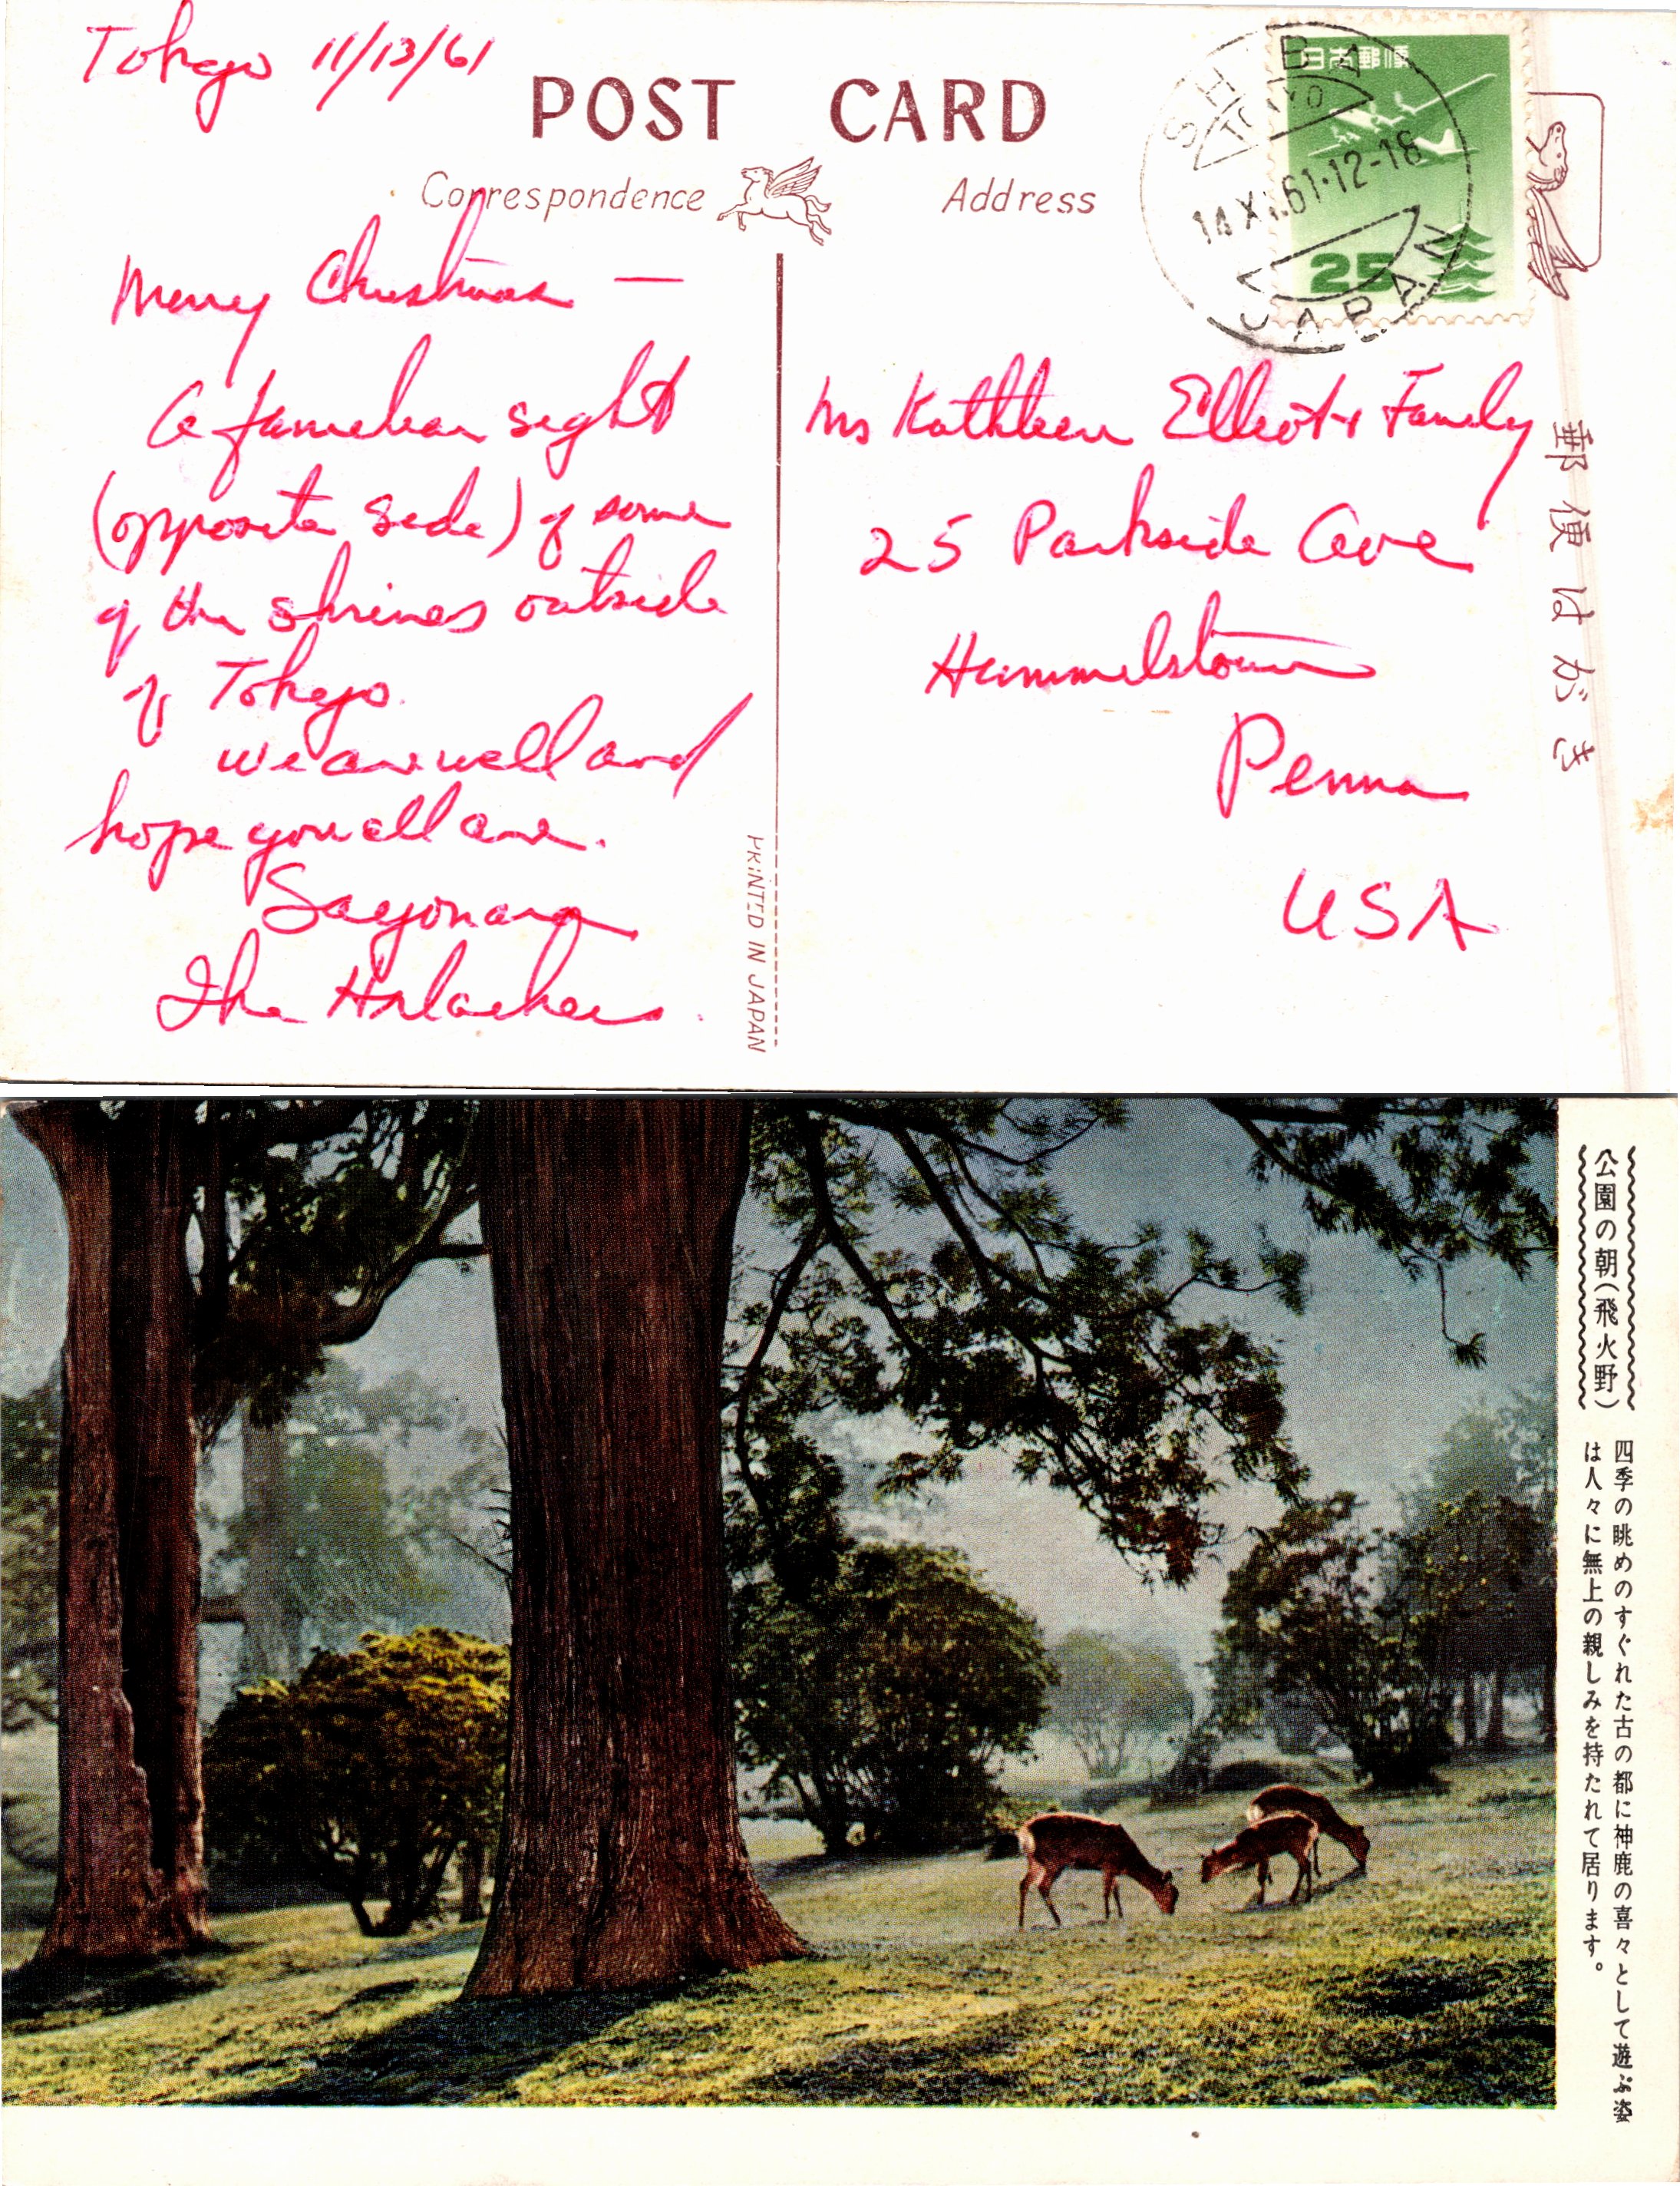 Tokyo 11/13/61
POST CARD
Correspondence
Address
SHIBA
TOKYO
14.XI.61.12-18
JAPAN
日本郵便
25
Merry Christmas —
A familiar sight
(opposite side) of some
of the shrines outside
of Tokyo.
We are well and
hope you all are.
Sayonara
The
Ms Kathleen Elliot & Family
25 Parkside Ave
Hummelstown
Penna
USA
PRINTED IN JAPAN
郵便はがき
公園の朝(飛火野)
四季の眺めのすぐれた古の都に神鹿の喜々として遊ぶ姿
は人々に無上の親しみを持たれて居ります。